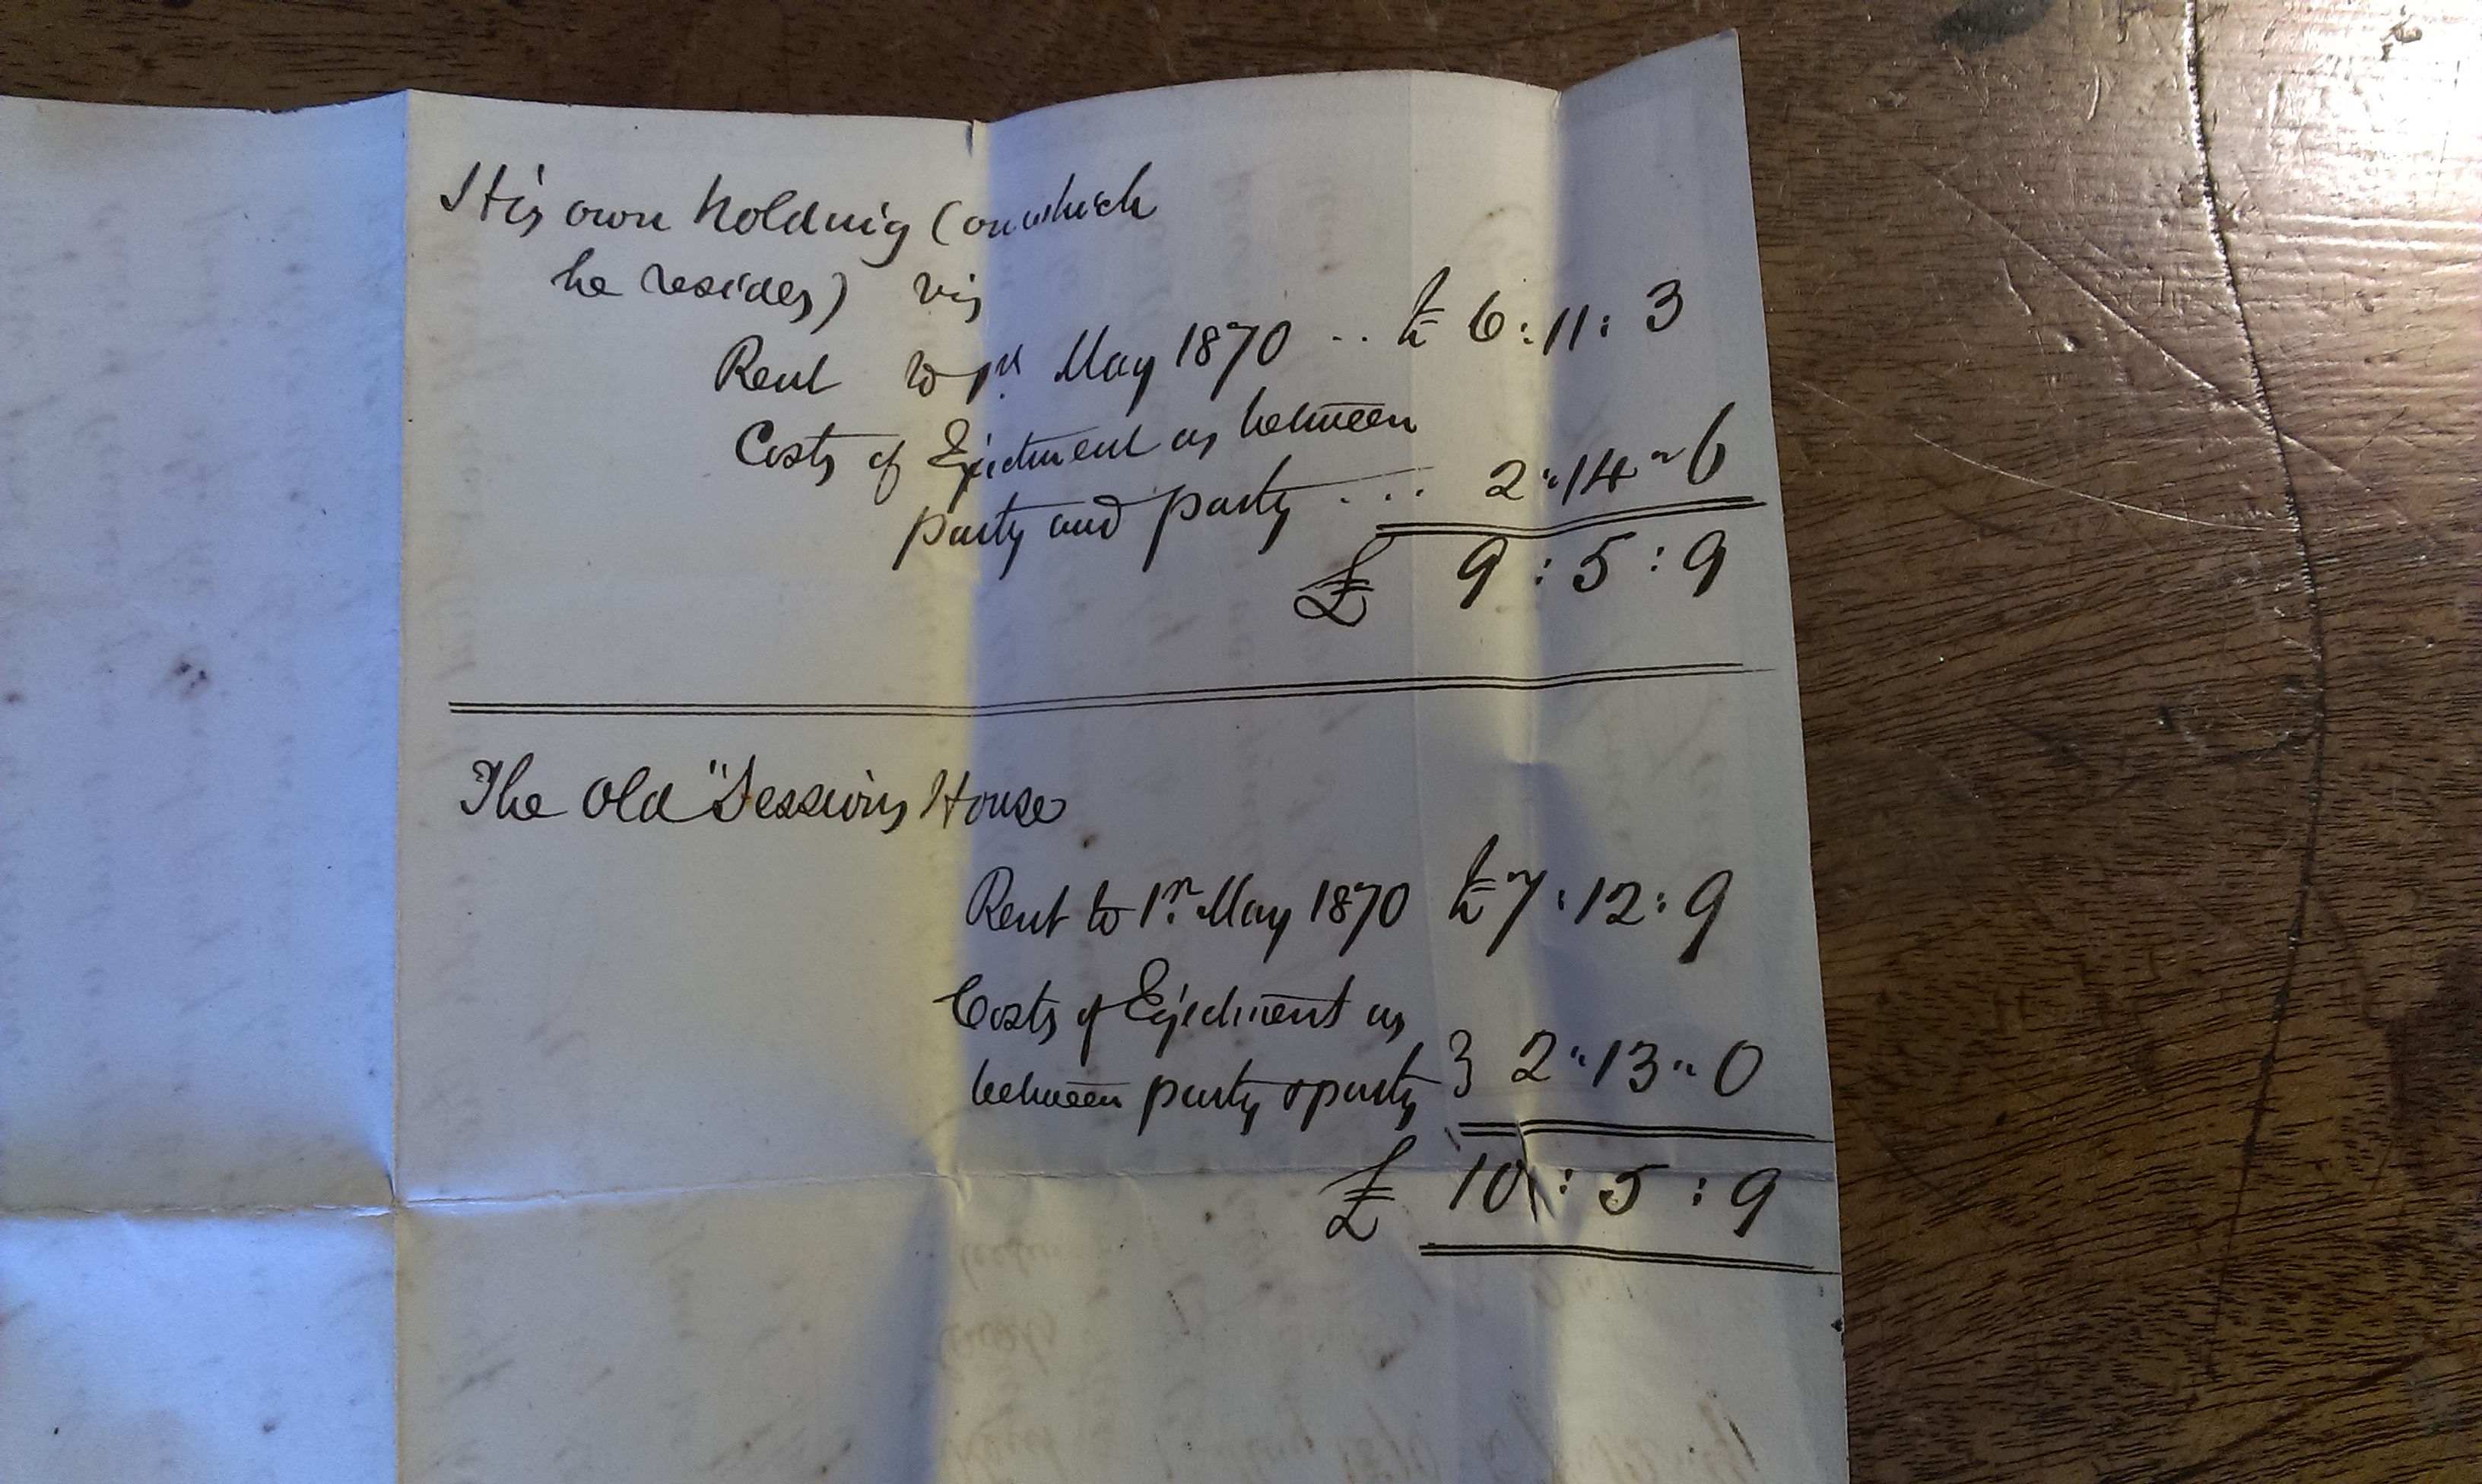 His own holding (on which
he resides) viz
Rent to 1st May 1870 .. £ 6 : 11 : 3
Costs of Ejectment as between
party and party .... 2 " 14 " 6
£ 9 : 5 : 9
The Old "Sessions House
Rent to 1st May 1870 £ 7 : 12 : 9
Costs of Ejectment as
between party & party } 2 " 13 " 0
£ 10 : 5 : 9